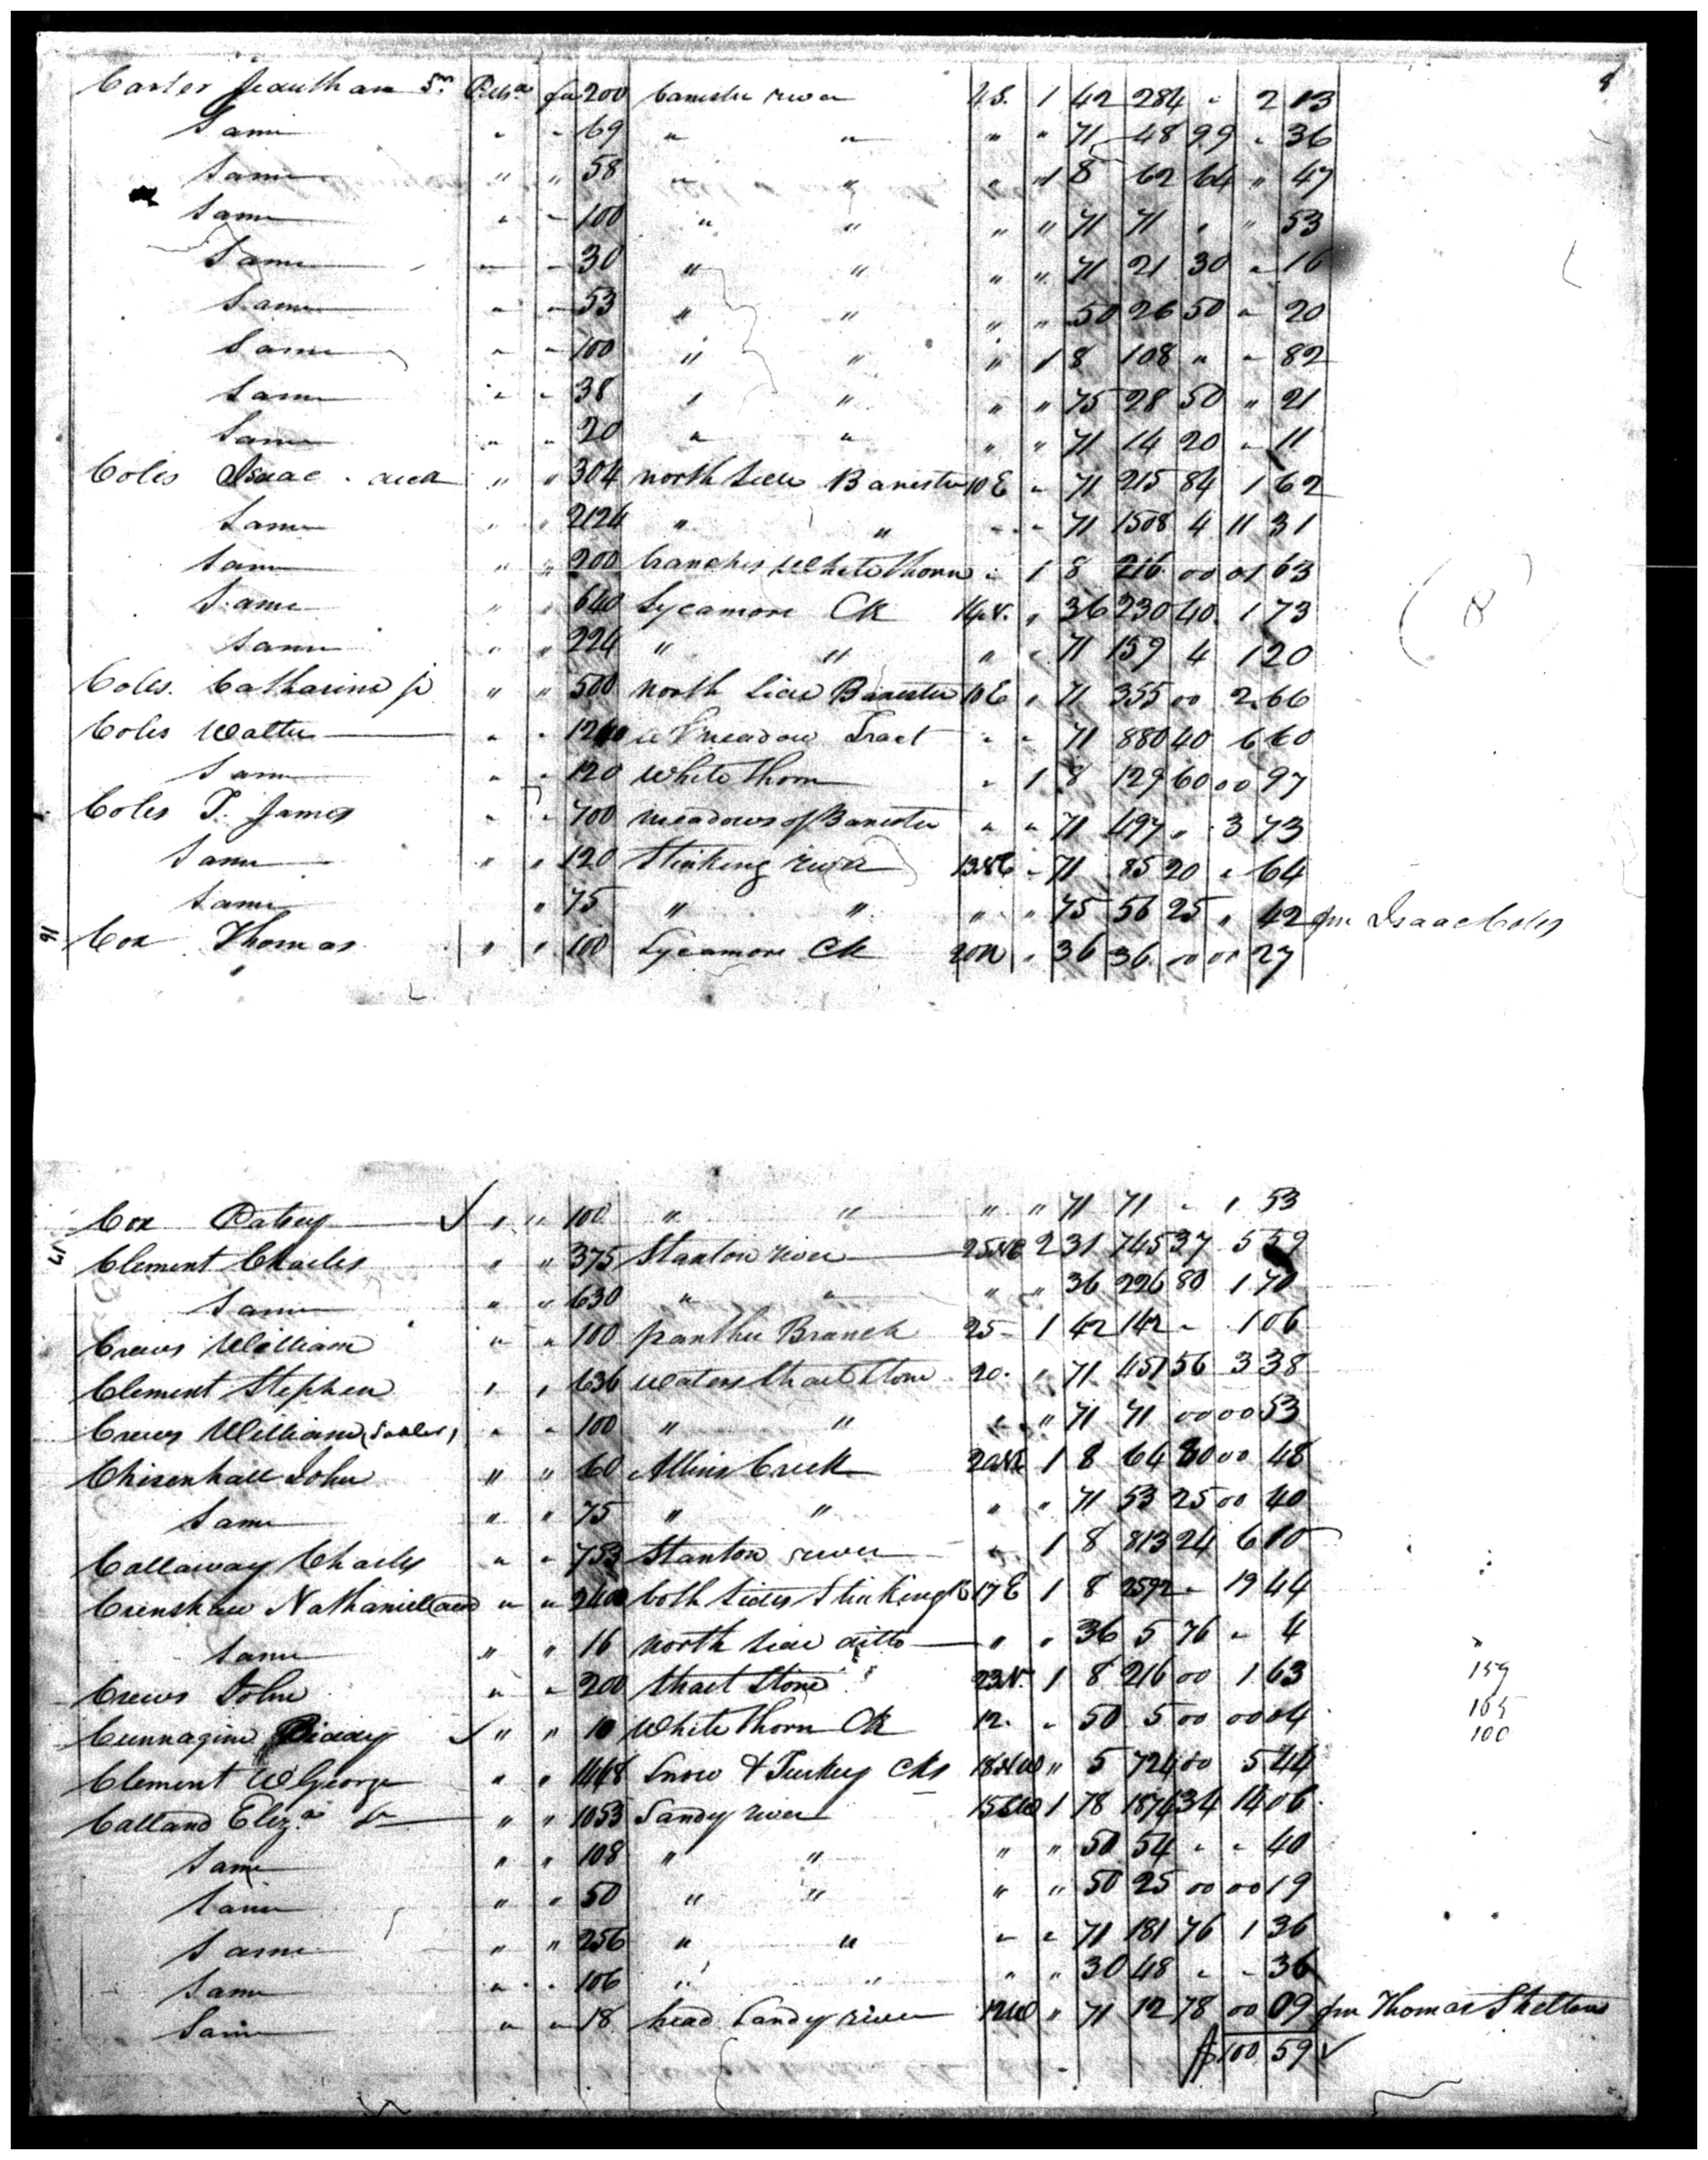 8
Carter Jeauthan Sr. Pitts.a fee 200 banister river 4 S. 1 42 284 " 2 13
Same " " 69 " " " " 71 48 99 " 36
Same " " 58 " " " 1 8 62 64 " 47
Same " " 100 " " " " 71 71 " " 53
Same " " 30 " " " " 71 21 30 " 16
Same " " 53 " " " " 50 26 50 " 20
Same " " 100 " " " 1 8 108 " " 82
Same " " 38 " " " " 75 28 50 " 21
Same " " 20 " " " " 71 14 20 " 11
Coles Isaac " " 304 north side Banister 10 E " 71 215 84 1 62
Same " " 2124 " " " " 71 1508 4 11 31
Same " " 200 branches White thorn " 1 8 216 00 01 63
Same " " 640 Sycamore Ck 14 N. " 36 230 40 1 73
Same " " 224 " " " " 71 159 4 1 20
Coles Catharine " " 500 north Side Banister 10 E " 71 355 00 2 66
Coles Walter " " 1240 meadow Tract " " 71 880 40 6 60
Same " " 120 White thorn " 1 8 129 60 00 97
Coles T. James " " 700 meadows of Banister " " 71 497 " 3 73
Same " " 120 Stinking river 13 N E " 71 85 20 " 64
Same " 75 " " " " 75 56 25 " 42 fm Isaac Coles
16 Cox Thomas " " 100 Sycamore Ck 20 N " 36 36 00 00 27
Cox Patsey " " 100 " " " " 71 71 " " 53
17 Clement Charles " " 375 Stanton river 25 N E 2 31 745 37 5 59
Same " " 630 " " " " 36 226 80 1 70
Crews William " " 100 panther Branch 25 1 42 142 " 1 06
Clement Stephen " " 636 Waters Strait Stone 20 " 71 451 56 3 38
Crews William " " 100 " " " " 71 71 00 00 53
Chisenhall John " " 60 Allins Creek 20 N E 1 8 64 80 00 48
Same " " 75 " " " " 71 53 25 00 40
Callaway Charles " " 753 Stanton river " 1 8 813 24 6 10
Crenshaw Nathaniel " " 2400 both sides Stinking R 17 E 1 8 2592 " 19 44
Same " " 16 north side ditto " " 36 5 76 " 4
Crews John " " 200 Strait Stone 23 N. 1 8 216 00 1 63 159
Cunnagim Biddy " " 10 White thorn Ck 12. " 50 5 00 00 04 165
100
Clement W George " " 1448 Snow & Turkey Cks 18 N W " 5 724 00 5 44
Calland Eliz.a " " 1053 Sandy river 15 S W 1 78 1874 34 14 06
Same " " 108 " " " " 50 54 " " 40
Same " " 50 " " " " 50 25 00 00 19
Same " " 256 " " " " 71 181 76 1 36
Same " " 106 " " " " 30 48 " " 36
Same " " 18 head Sandy river 12 W " 71 12 78 00 09 fm Thomas Shelton
$100 59